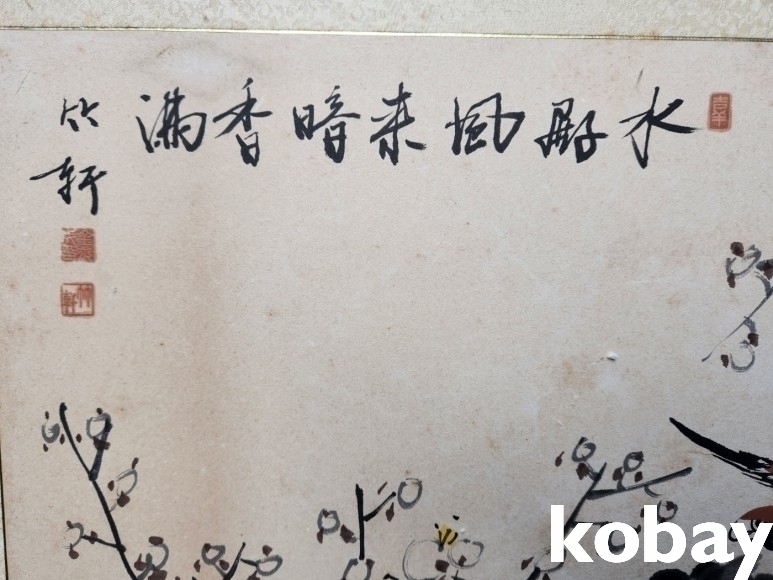 水殿風来暗香滿
竹軒
竹軒
kobay